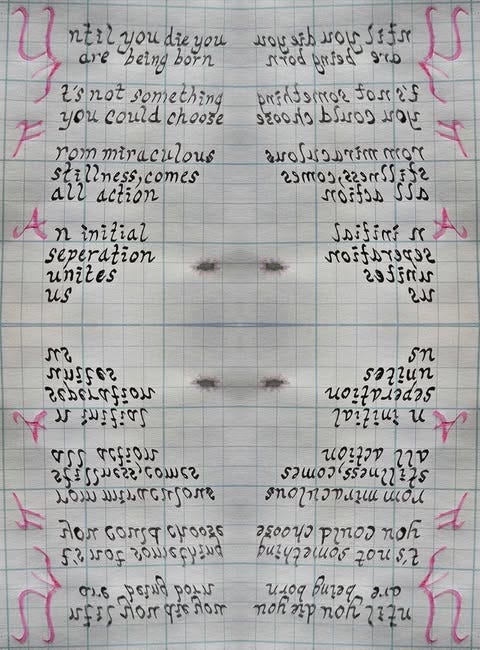 Until you die you
are being born
It's not something
you could choose
From miraculous
stillness, comes
all action
An initial
seperation
unites
us